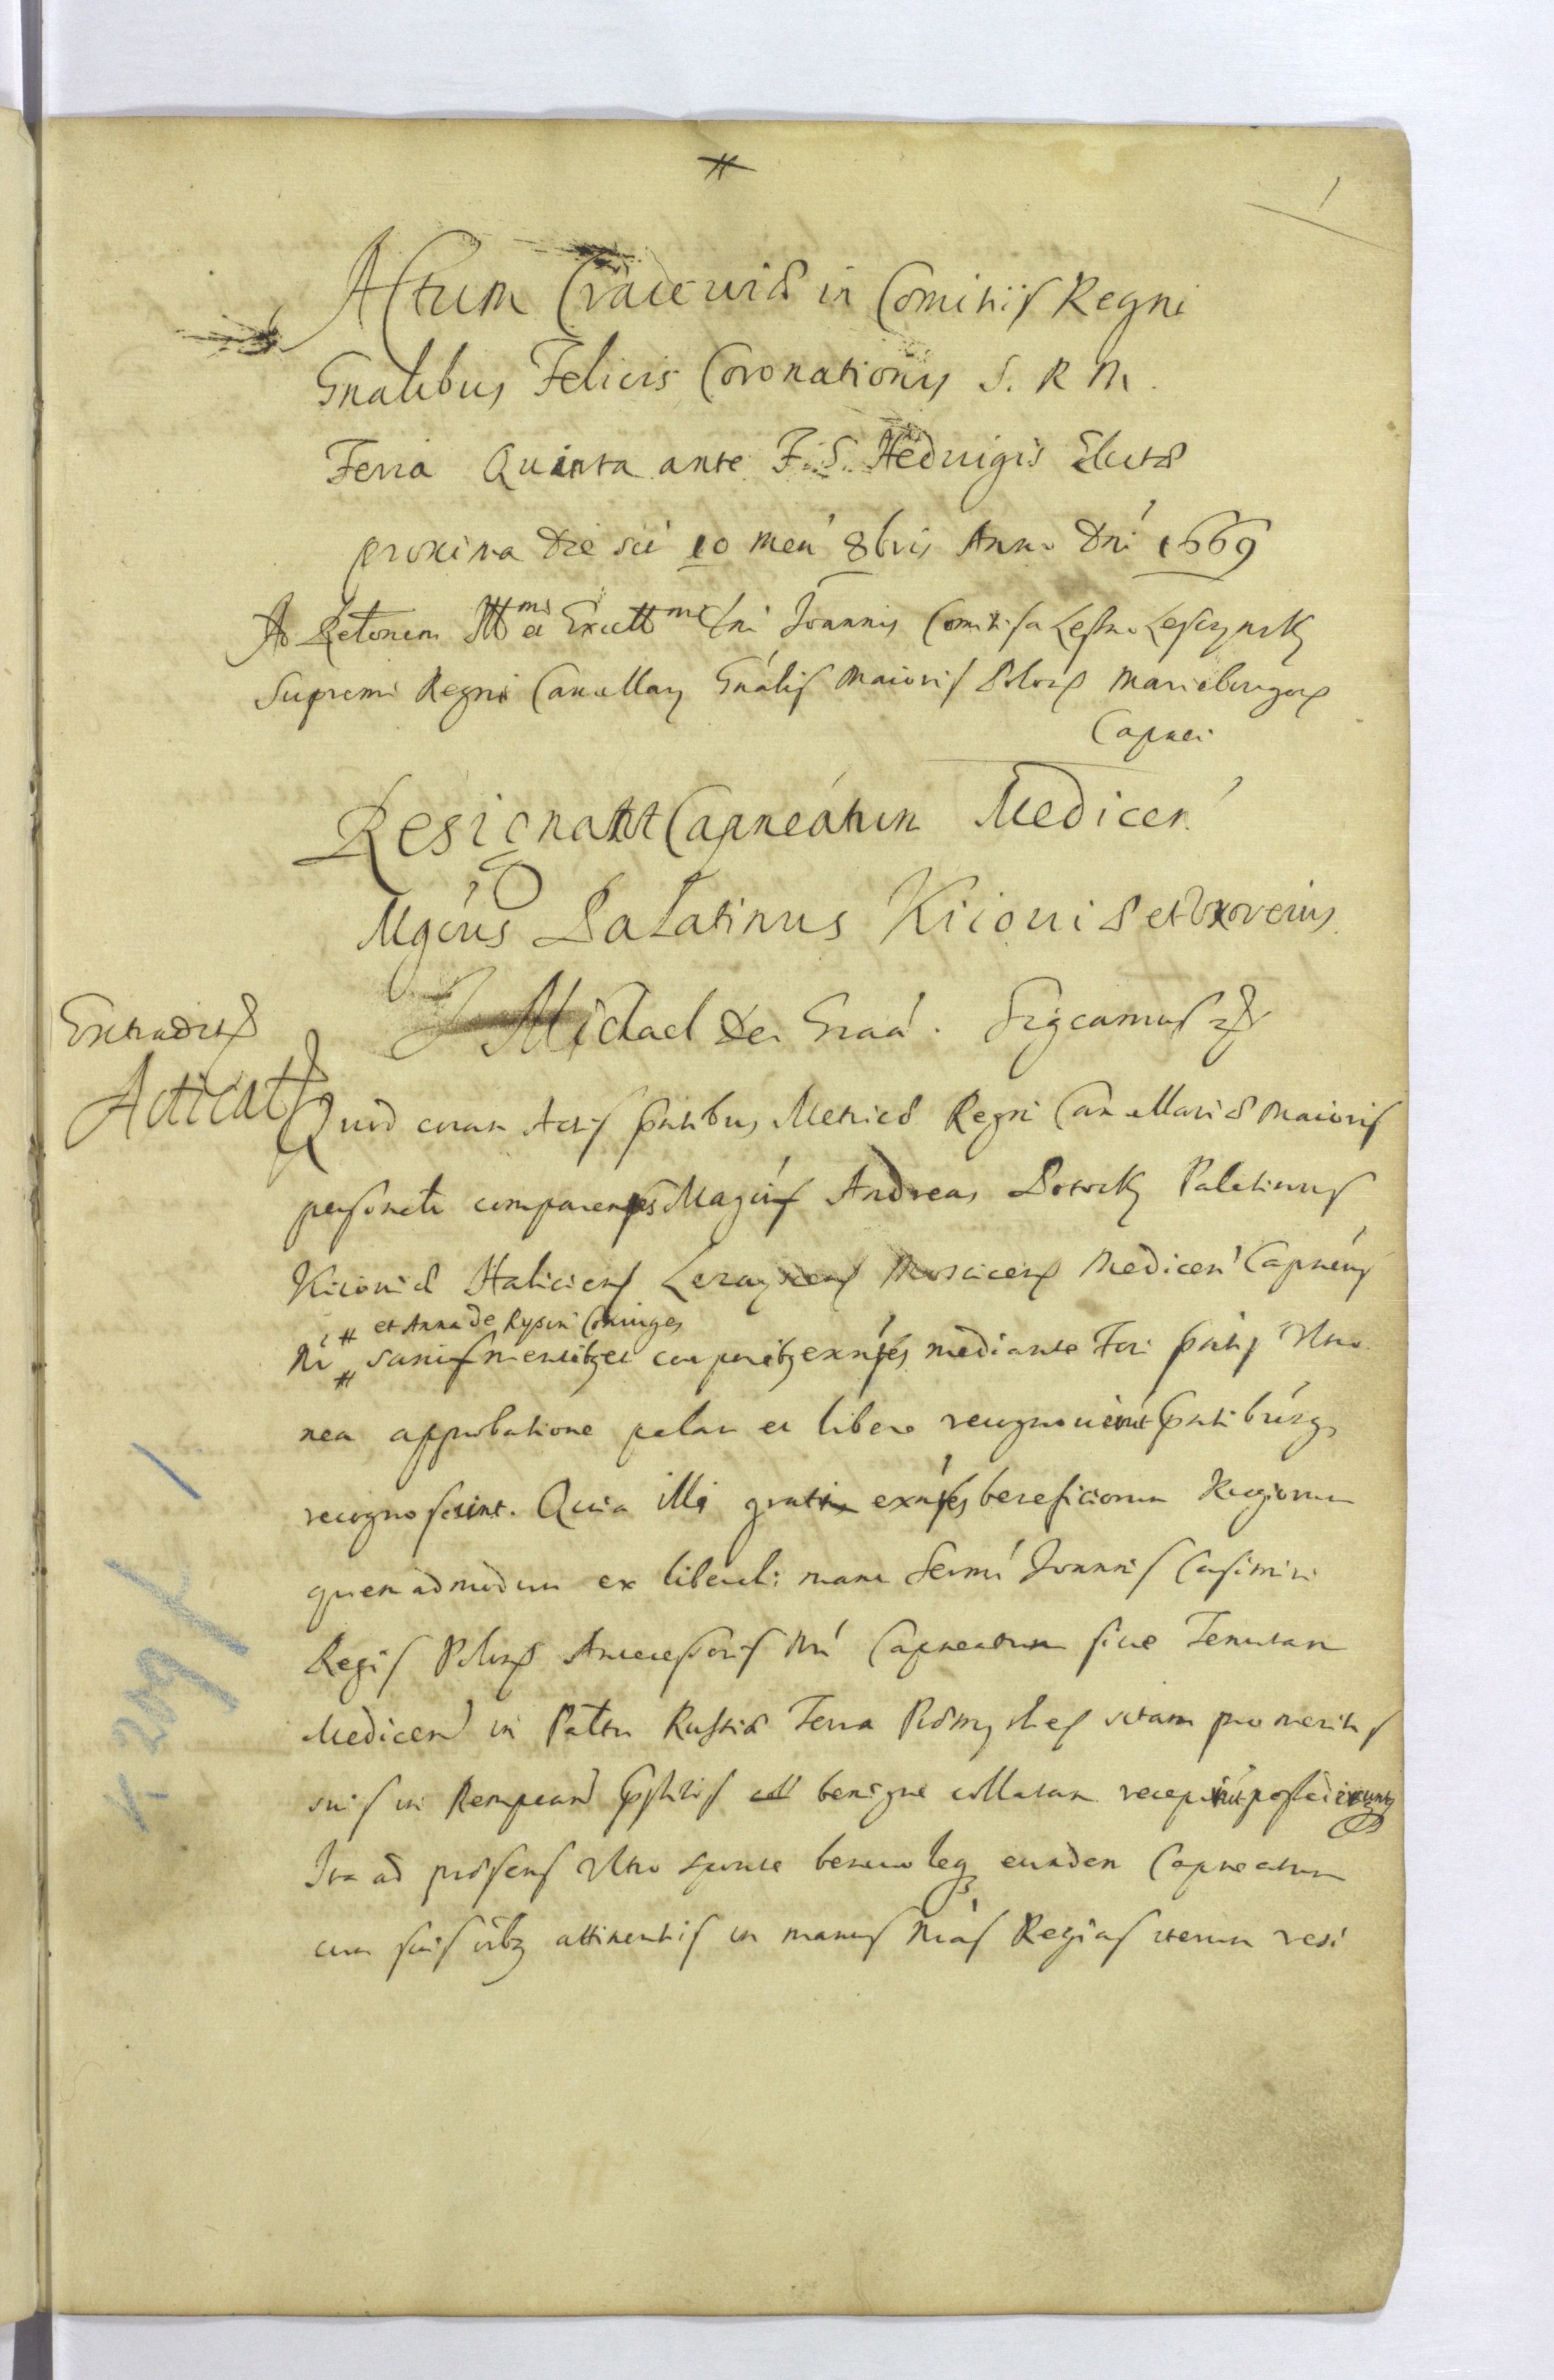 1
Actum Cracoviæ in Comitiis Regni
Gnalibus Felicis Coronationis S. R. M.
Feria Quinta ante F. S. Hedvigis Electæ
proxima die scī 10 men 8bris Anno Dnī 1669
Ad Reltōnem Illmi et Excellmi Dni Joannis Comitis a Leszno Lesczynsky
Supremi Regni Cancellary Gnālis Maioris Polon Marieburgen
Capnei
Resignatt Capneātum Medicen
Mgcus Palatinus Kiioviæ et Uxor eius
Michael Dei Graā. Sigcamus
Extradit
Acticat
Quod coram Actis pntibus Metrices Regni Cancellariæ Maioris
personalr comparentes Magcus Andreas Potocky Palatinus
Kiioviæ Haliciens Lezayscens Mosciscens Medicen Capneus
et Anna de Rysin Coniuges
Nr sani mentibz et corporibz exntes mediante Fori pntis Ultro
nea approbatione palam et libere recognoverunt pntibusqz
recognoscunt. Quia illi grati exntes beneficiorum Regiorum
quemadmodum ex liberali manu Sermi Joannis Casimiri
Regis Polon Antecessoris Nri Capneatum sive Tenutam
Medicen in Paltu Russiæ Terra Præmyslies sitam pro meritis
suis in Rempcam præstitis benigne collatam receperunt possederuntqz
Ita ad præsens Ultro sponte benevoleqz eundem Capneatum
cum suis oibz attinentiis in manus Nras Regias iterum resi
K 209/I 1